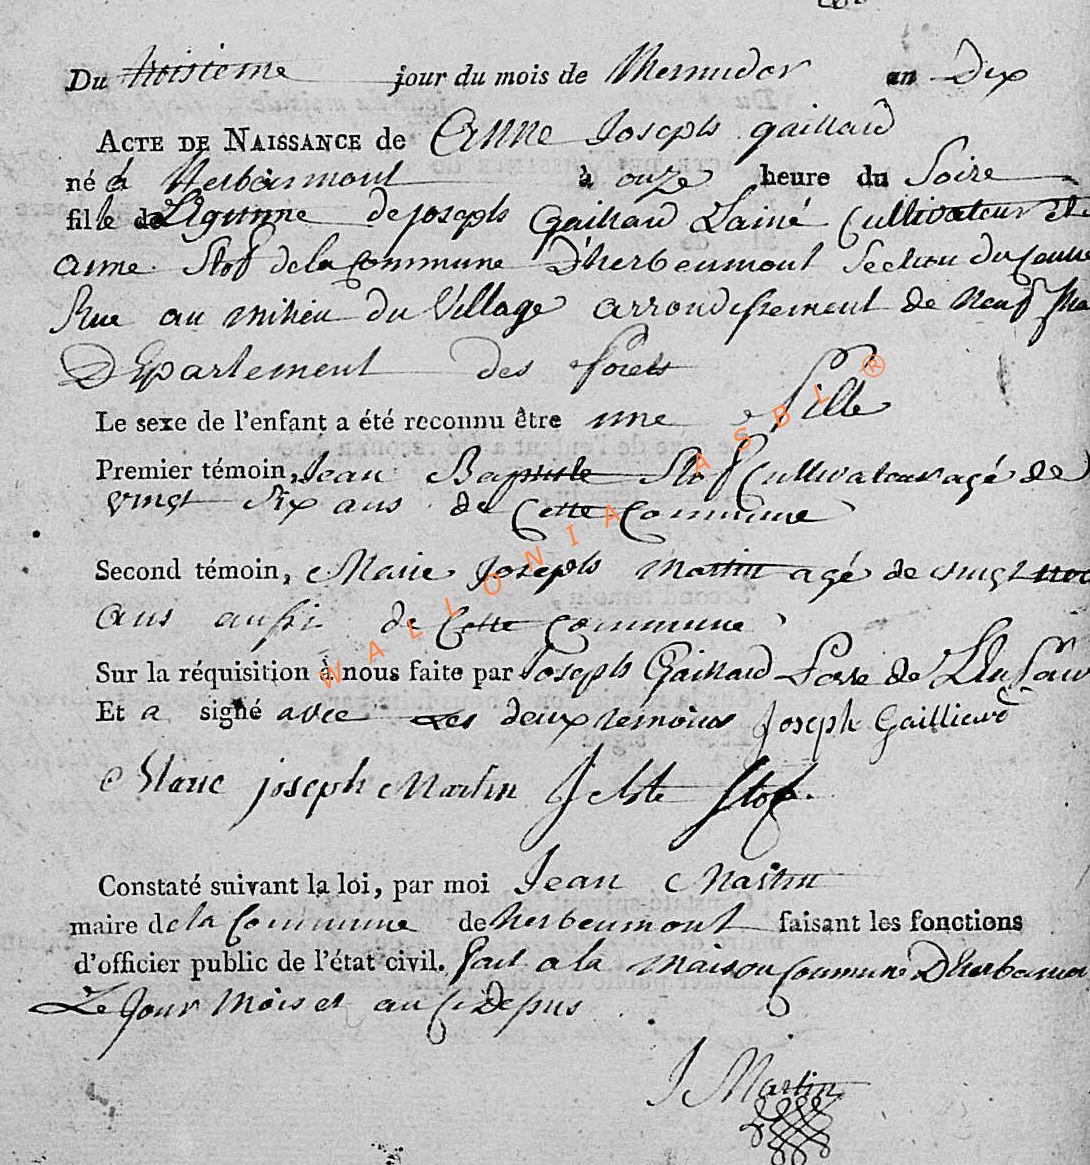 Du troisieme jour du mois de Mermidor an Dix
ACTE DE NAISSANCE de Anne Joseph gaillard
né à Herbeumont à onze heure du Soire
fille de Légitime de joseph Gaillard L'ainé Cultivateur et
anne Stof de la Commune D'herbeumont Section du
Rue au milieu du Village arrondissement de Neuf
DEpartement des forets
Le sexe de l'enfant a été reconnu être une fille
Premier témoin, Jean Baptiste Stof Cultivateur agé de
vingt six ans de Cette Commune
Second témoin, Marie Joseph Martin agé de vingt
ans aussi de Cette Commune
Sur la réquisition à nous faite par Joseph Gaillard Perre de
Et a signé avec Les deux temoins Joseph Gaillard
Marie joseph Martin J Bte Stof.
Constaté suivant la loi, par moi Jean Martin
maire de la Commune de herbeumont faisant les fonctions
d'officier public de l'état civil. fait a la Maison Commune D'herbeumon
Le Jour Mois et an
J Martin
WALLONIA ASBL ®